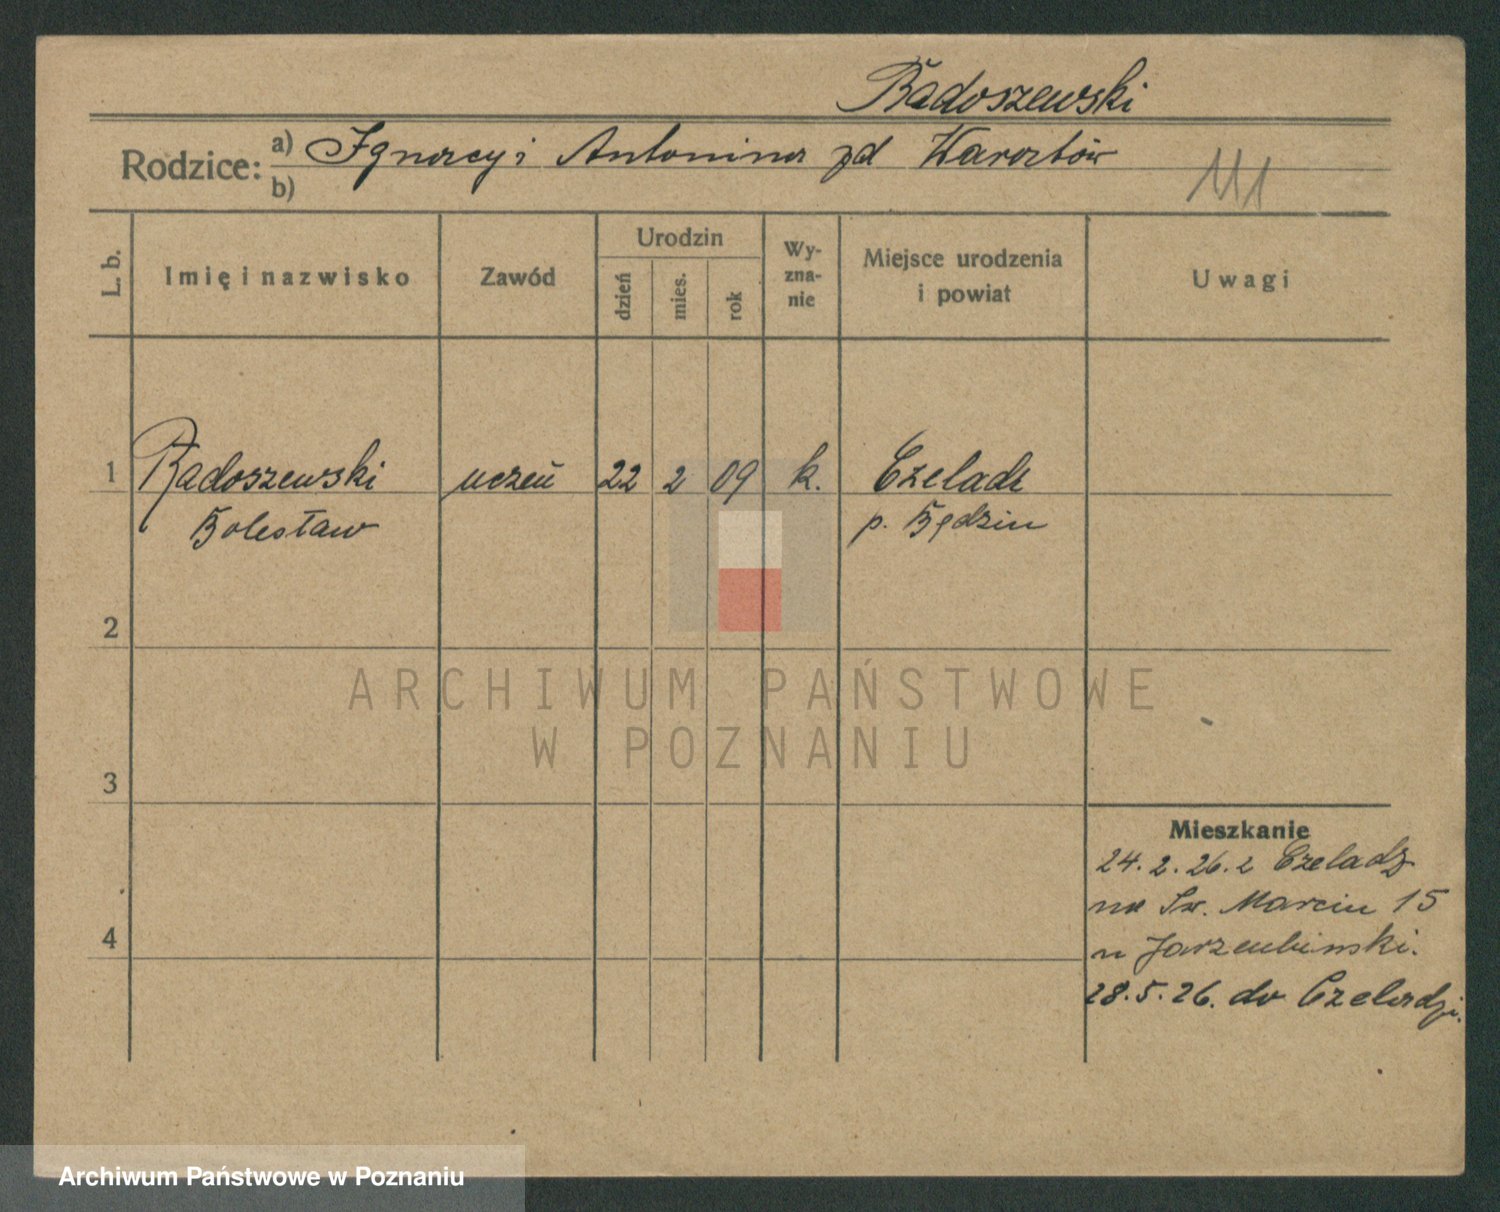 Radoszewski
Rodzice: a) Ignacy i Antonina zd
b)
111
L. b.
Imię i nazwisko
Zawód
Urodzin
dzień
mies.
rok
Wy-
zna-
nie
Miejsce urodzenia
i powiat
Uwagi
1 Radoszewski uczeń 22 2 09 k. Czeladź
Bolesław p. Będzin
2
3
4
Mieszkanie
24.2.26. z Czeladz
na Św. Marcin 15
u Jarzembinski.
28.5.26. do Czeladzi.
ARCHIWUM PAŃSTWOWE
W POZNANIU
Archiwum Państwowe w Poznaniu